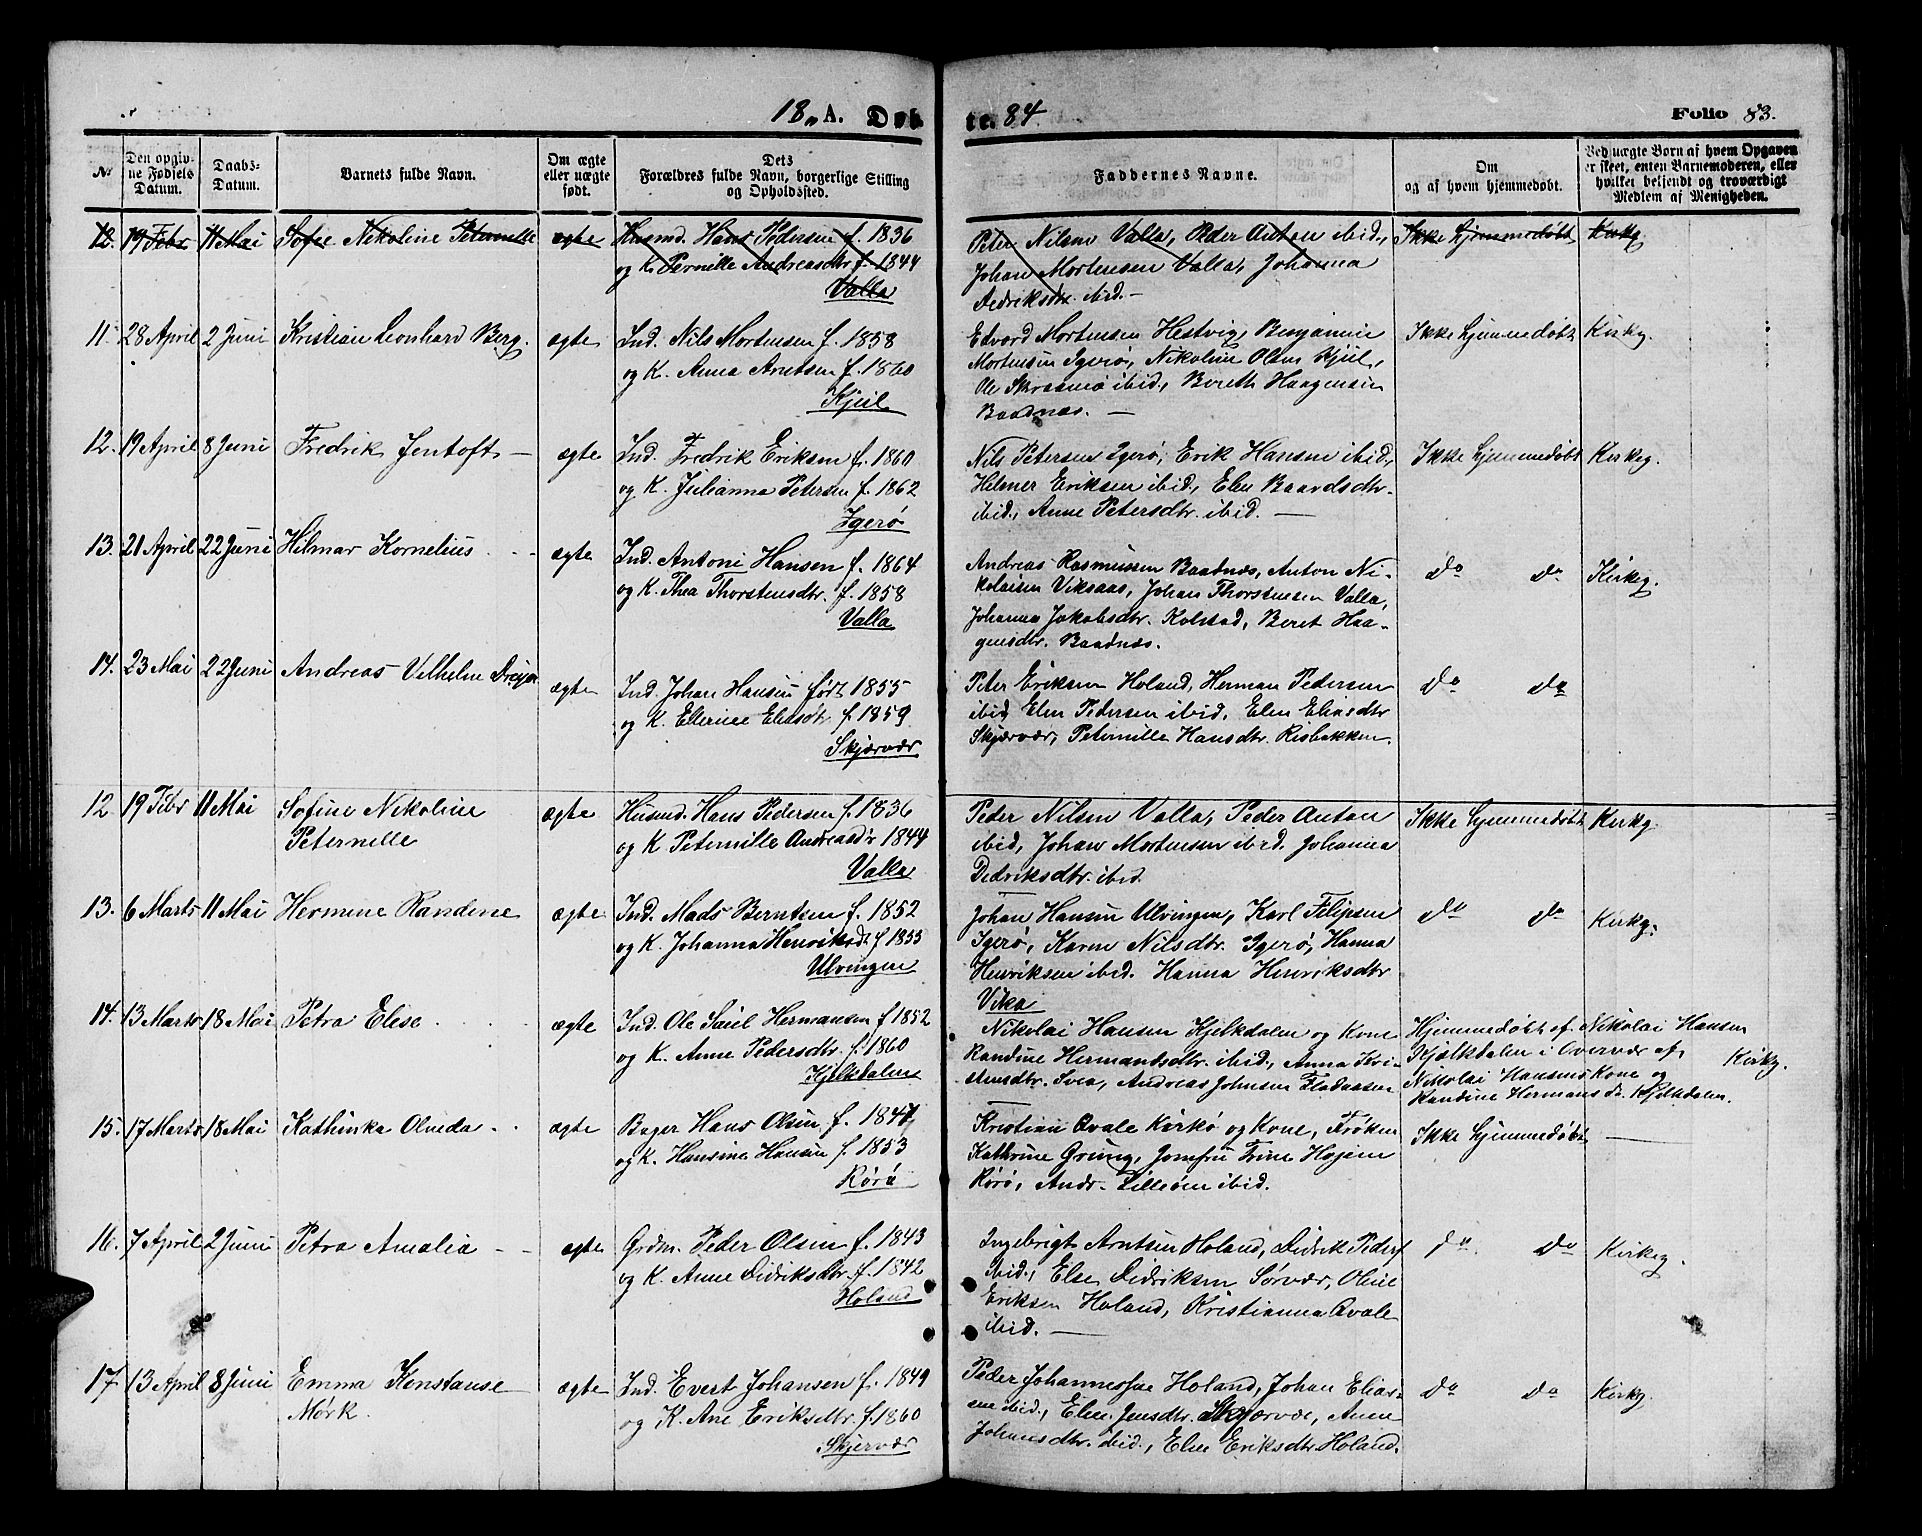 18 A. Døbte. 84. Folio 83.
№ Den opgivne Fødsels Datum. Daabs-Datum. Barnets fulde Navn. Om ægte eller uægte født. Dets Forældres fulde Navn, borgerlige Stilling og Opholdssted. Faddernes Navne. Om og af hvem hjemmedøbt. Ved uægte Børn af hvem Opgaven er skeet, enten Barnemoderen, eller hvilket betjendt og troværdigt Medlem af Menigheden.
12. 19 Febr 11 Mai Sofie Nikoline Peternille ægte Husmd. Hans Pedersen f. 1836 Peter Nilsen Valla, Peder Anton ibid., Ikke hjemmedøbt Kirkg
og K. Pernille Andreasdtr f. 1844 Johan Mortensen Valla, Johanna
Valla Dedriksdtr. ibid. —
11. 28 April 2 Juni Kristian Leonhard Berg. ægte Ind. Nils Mortensen f. 1858 Edvard Mortensen Hestvig, Benjamin Ikke hjemmedøbt Kirkg.
og K. Anna Arntsen f. 1860 Mortensen Igerø, Nikoline Olsen Kjeil,
Kjeil Ole Skraanø ibid., Bereth Haagensen
Baadnæs. —
12. 19 April 8 Juni Fredrik Jentoft — ægte Ind. Fredrik Eriksen f. 1860 Nils Petersen Igerø, Erik Hansen ibid., Ikke hjemmedøbt Kirkeg.
og K. Julianna Petersen f. 1862 Helmer Eriksen ibid., Elen Baardsdtr.
Igerø ibid., Anne Petersdtr. ibid. —
13. 21 April 22 Juni Hilmar Kornelius ægte Ind. Antoni Hansen f. 1864 Andreas Rasmussen Baadnæs, Anton Ni- do do Kirkeg.
og K. Thea Thorstensdtr. f. 1858 kolaisen Viksaas, Johan Thorstensen Valla,
Valla Johanna Jakobsdtr. Kolstad, Beret Haa-
gensdtr. Baadnæs.
14. 23 Mai 22 Juni Andreas Vilhelm Dreyer ægte Ind. Johan Hansen født 1855 Peter Eriksen Holand, Herman Pedersen do do
og K. Ellerine Eliasdtr f. 1859 ibid, Elen Pedersen ibid, Elen Eliasdtr
Skjærvær Skjærvær, Peternille Hansdtr. Risbakken.
12. 19 Febr 11 Mai Sofine Nikoline ægte Husmd. Hans Pedersen f. 1836 Peder Nilsen Valla, Peder Anton Ikke hjemmedøbt Kirkg.
Peternelle og K Peternille Andreasdr 1844 ibid, Johan Mortensen ibid. Johanna
Valla Dedriksdtr. ibid.
13. 6 Marts 11 Mai Hermine Randine ægte Ind. Mads Berntsen f. 1852 Johan Hansen Ulvingen, Karl Filipsen do do Kirkg.
og K. Johanna Henriksdt f 1855 Igerø, Karen Nilsdtr. Igerø, Hanna
Ulvingen Henriksen ibid. Hanna Henriksdtr
Vika
14. 13 Marts 18 Mai Petra Elise ægte Ind. Ole Saul Hermansen f 1852 Nikolai Hansen Kjelkdalen og Kone Hjemmedøbt af Nikolai Hansen
og K. Anne Pedersdtr. f. 1860 Randine Hermansdtr. ibid., Anna Kri- Kjælkdalen i Overvær af, Kirkg.
Kjelkdalen stensdtr. Svea, Andreas Johnsen Nikolai Hansens Kone og
Randine Hermansdr. Kjelkdalen.
15. 17 Marts 18 Mai Kathinka Olueda ægte Bager Hans Olsen f. 1847 Kristian Qvale Kirkø og Kone, Frøken Ikke hjemmedøbt —
og K. Hansine Hansen f. 1853 Kathrine Grung, Jomfru Trine
Rørø Rørø, Andr. Lilleøen ibid.
16. 7 April 2 Juni Petra Amalia — ægte Grdm. Peder Olsen f. 1843 Ingebrigt Arntsen Holand, Didrik Peders do do Kirkeg.
og K. Anne Didriksdtr. f. 1842 ibid., Else Didriksen Sørvær, Oline
Holand Eriksen Holand, Kristianna Qvale
ibid. —
17. 13 April 8 Juni Emma Konstanse ægte Ind. Evert Johansen f. 1849 Peder Johannessen Holand, Johan Elias- do do Kirkg.
Mørk. og K. Ane Eriksdtr. f. 1860 sen ibid., Elen Jensdtr. Skjærvær, Anne
Skjervær Johansdtr. ibid., Elen Eriksdtr Holand.